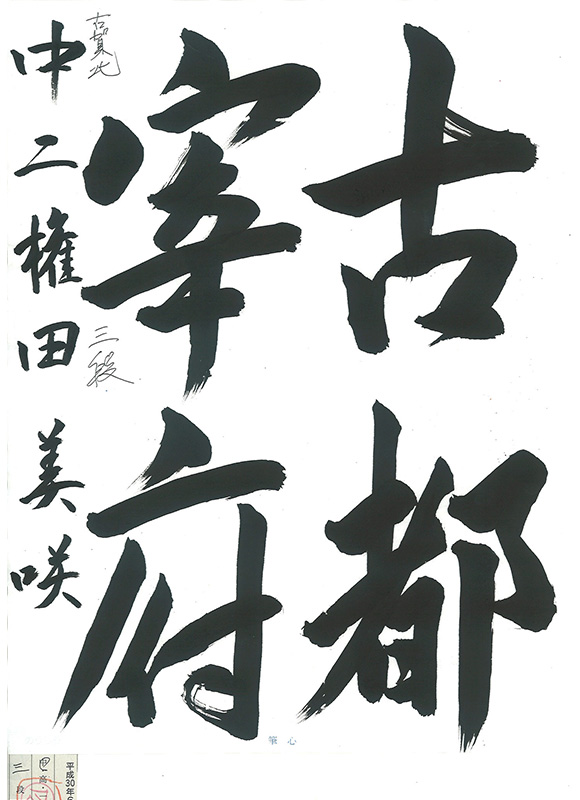 古都
宰府
中二権田美咲
古賀北
三段
筆心
平成30年
三段